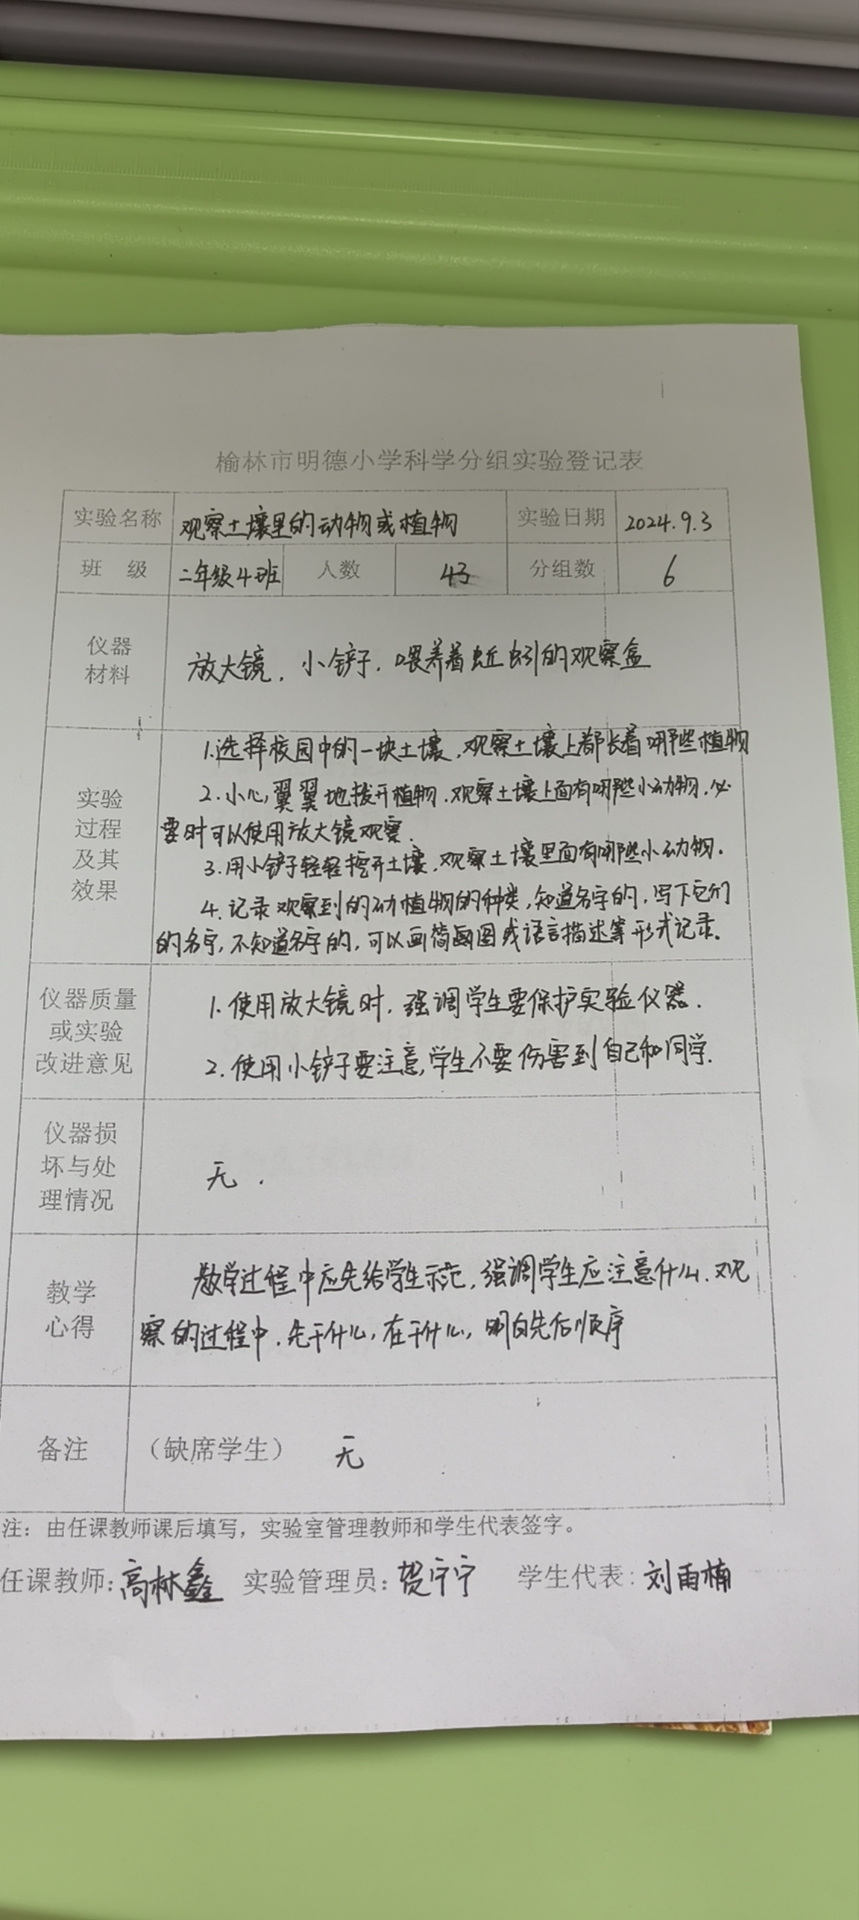 榆林市明德小学科学分组实验登记表
实验名称 观察土壤里的动物或植物 实验日期 2024.9.3
班 级 二年级4班 人数 43 分组数 6
仪器
材料
放大镜、小铲子、喂养着蚯蚓的观察盒
实验
过程
及其
效果
1.选择校园中的一块土壤,观察土壤上都长着哪些植物
2.小心翼翼地拨开植物,观察土壤上面有哪些小动物,必
要时可以使用放大镜观察.
3.用小铲子轻轻挖开土壤,观察土壤里面有哪些小动物.
4.记录观察到的动植物的种类,知道名字的,写下它们
的名字,不知道名字的,可以画简画图或语言描述等形式记录.
仪器质量
或实验
改进意见
1.使用放大镜时,强调学生要保护实验仪器.
2.使用小铲子要注意,学生不要伤害到自己和同学.
仪器损
坏与处
理情况
无.
教学
心得
教学过程中应先给学生示范,强调学生应注意什么.观
察的过程中,先干什么,在干什么,明白先后顺序
备注 (缺席学生) 无
注：由任课教师课后填写，实验室管理教师和学生代表签字。
任课教师:高林鑫 实验管理员:贺宁宁 学生代表:刘雨楠